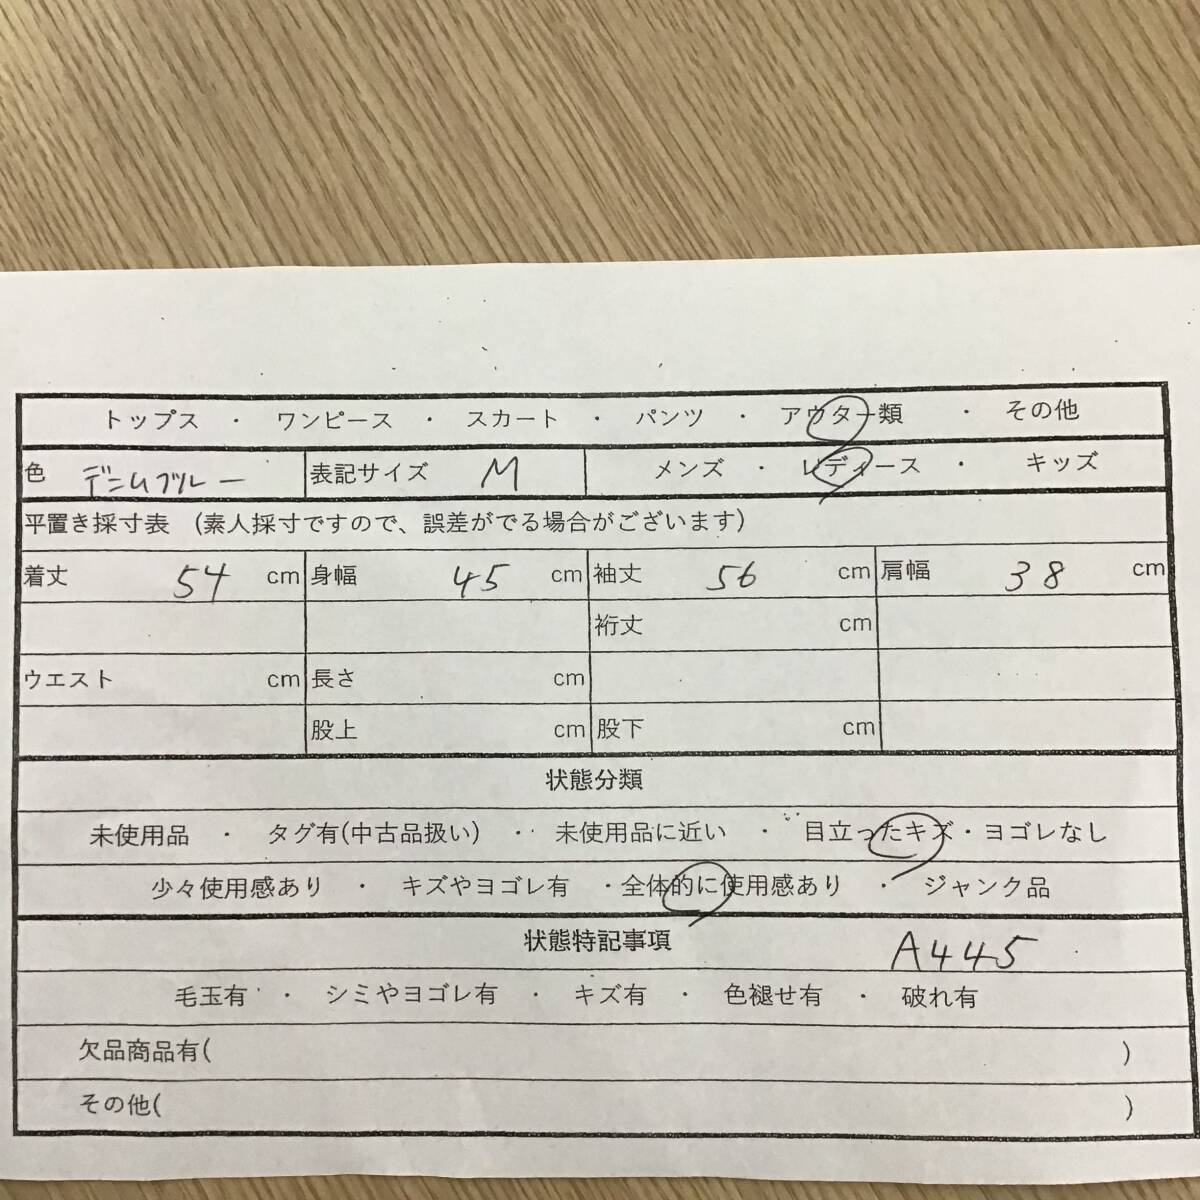 トップス ・ ワンピース ・ スカート ・ パンツ ・ アウター類 ・ その他
色 デニムブルー 表記サイズ M メンズ ・ レディース ・ キッズ
平置き採寸表 (素人採寸ですので、誤差がでる場合がございます)
着丈 54 cm 身幅 45 cm 袖丈 56 cm 肩幅 38 cm
裄丈 cm
ウエスト cm 長さ cm
股上 cm 股下 cm
状態分類
未使用品 ・ タグ有(中古品扱い) ・ 未使用品に近い ・ 目立ったキズ・ヨゴレなし
少々使用感あり ・ キズやヨゴレ有 ・全体的に使用感あり ・ ジャンク品
状態特記事項 A445
毛玉有 ・ シミやヨゴレ有 ・ キズ有 ・ 色褪せ有 ・ 破れ有
欠品商品有( )
その他( )